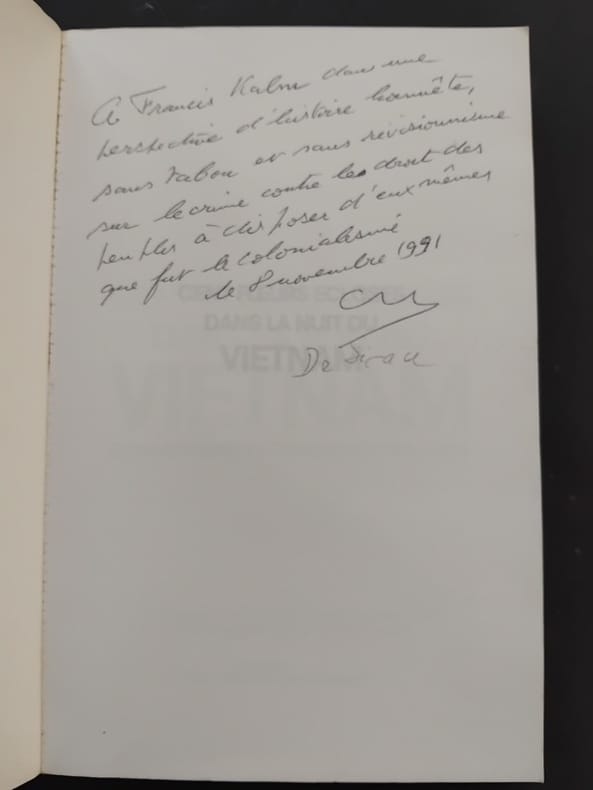 A Francis Kahn dans une
perspective d'histoire honnête,
sans tabou et sans révisionnisme
sur le crime contre les droit des
peuples à disposer d'eux mêmes
que fut le colonialisme
le 8 novembre 1991
Dr
CENT FLEURS ECLOSES
DANS LA NUIT DU
VIETNAM
VIETNAM